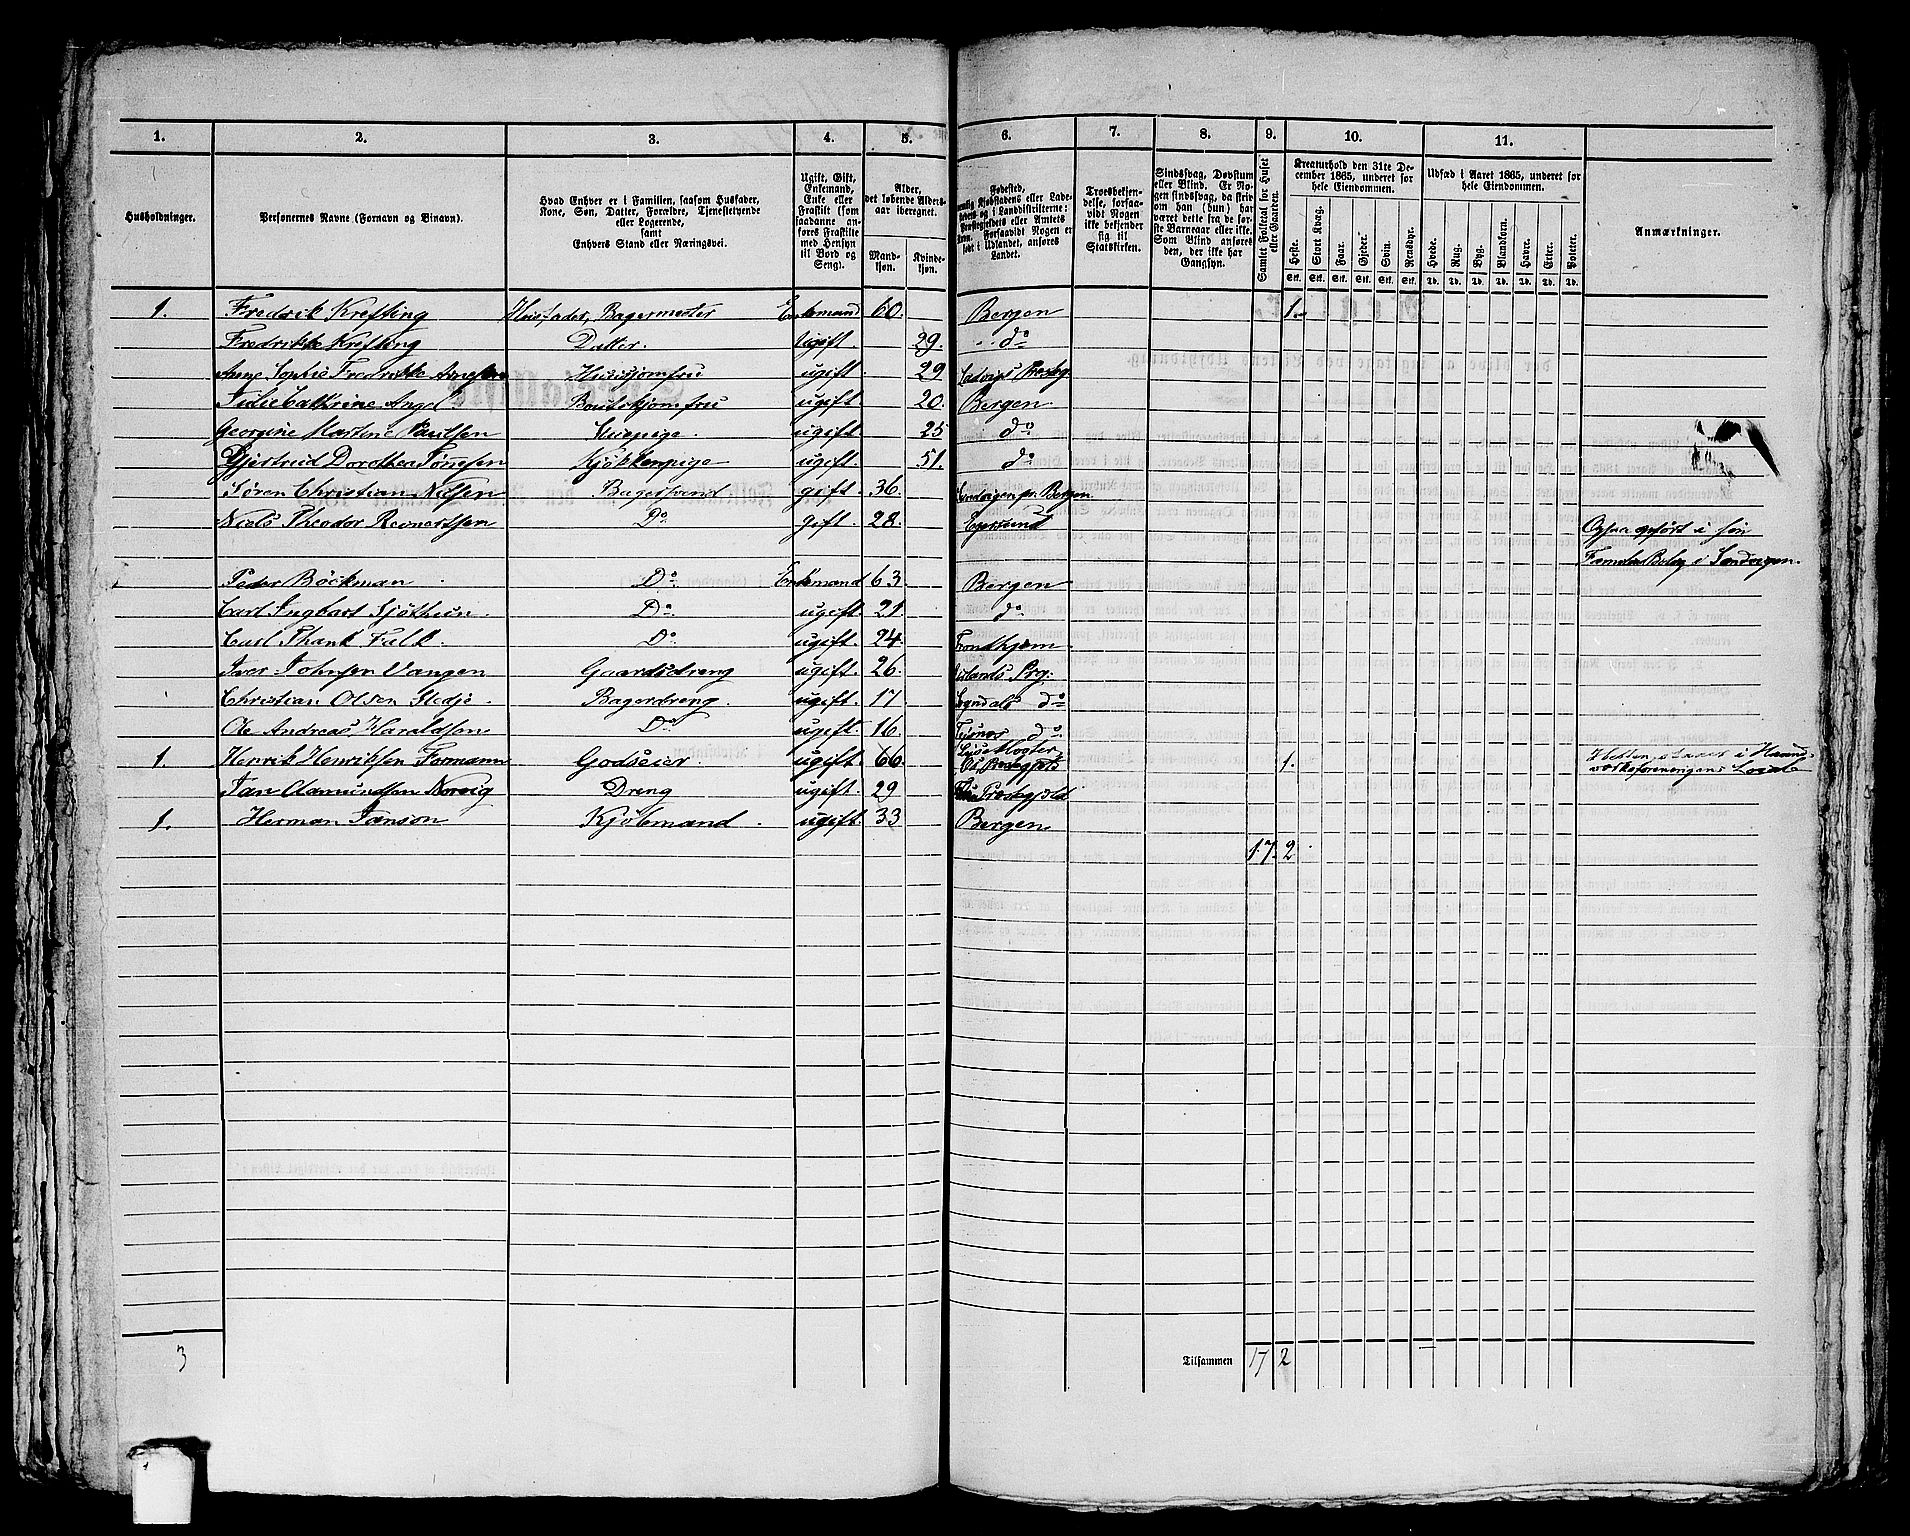 1. 2. 3. 4. 5. 6. 7. 8. 9. 10. 11.
Husholdninger.
Personernes Navne (Fornavn og Binavn).
Hvad Enhver er i Familien, saasom Husfader,
Kone, Søn, Datter, Forældre, Tjenestetyende
eller Logerende,
samt
Enhvers Stand eller Næringsvei.
Ugift, Gift,
Enkemand,
Enke eller
Fraskilt (som
saadanne an-
føres Fraskilte
med Hensyn
til Bord og
Seng).
Alder,
det løbende Alders-
aar iberegnet.
Mand-
kjøn.
Kvinde-
kjøn.
Fødested,
Landet.
Troesbekjen-
delse, forsaa-
vidt Nogen
ikke bekjender
sig til
Statskirken.
Sindssvag, Døvstum
eller Blind. Er No-
gen sindssvag, da skriv
om han (hun) har
været dette fra de før-
ste Barneaar eller ikke.
Som Blind anføres
den, der ikke har
Gangsyn.
Samlet Folketal for Huset
eller Gaarden.
Kreaturhold den 31te De-
cember 1865, underet for
hele Eiendommen.
Heste. Stort Kvæg. Faar. Gjeder. Svin. Rensdyr.
Stk. Stk. Stk. Stk. Stk. Stk.
Udsæd i Aaret 1865, underet for
hele Eiendommen.
Hvede. Rug. Byg. Blandkorn. Havre. Erter. Poteter.
Td. Td. Td. Td. Td. Td. Td.
Anmærkninger.
1. Fredrik Krefting Husfader, Bagermester Enkemand 60. Bergen 1.
Fredrikke Krefting Datter. Ugift. 29. do
Anne Sophie Fredrikke Arnesen Huusjomfru ugift. 29 Ladvigs Præstg.
Julie Cathrine Angel Boutikjomfru ugift. 20. Bergen.
Georgine Martine Paulsen Stuepige. ugift. 25 do
Gjertrud Dorothea Tønnesen Kjøkkenpige ugift. 51. do
Søren Christian Nilsen Bagersvend gift. 36. Sandvigen pr. Bergen.
Niels Theodor Reinertsen Do. gift. 28. Egersund Ogsaa opført i sin
Familie Bolig i Sandvigen.
Peder Böckman Do. Enkemand 63. Bergen
Carl Ingbart Sjøthun. Do. ugift. 21. do
Carl Thank Falk. Do. ugift. 24. Trondhjem
Iver Johnsen Vangen Gaardsdreng ugift. 26. Prg:
Christian Olsen Stedje Bagerdreng. ugift. 17. Sogndals do
Ole Andreas Haraldsen Do. ugift. 16. Tysnes do.
1. Henrik Henriksen Formann Godseier. ugift. 66 1.
Jan Aamundsen Norvig Dreng ugift. 29 Præstegjeld
1. Herman Janson Kjøbmand. ugift. 33 Bergen.
17. 2
3
Tilsammen 17 2